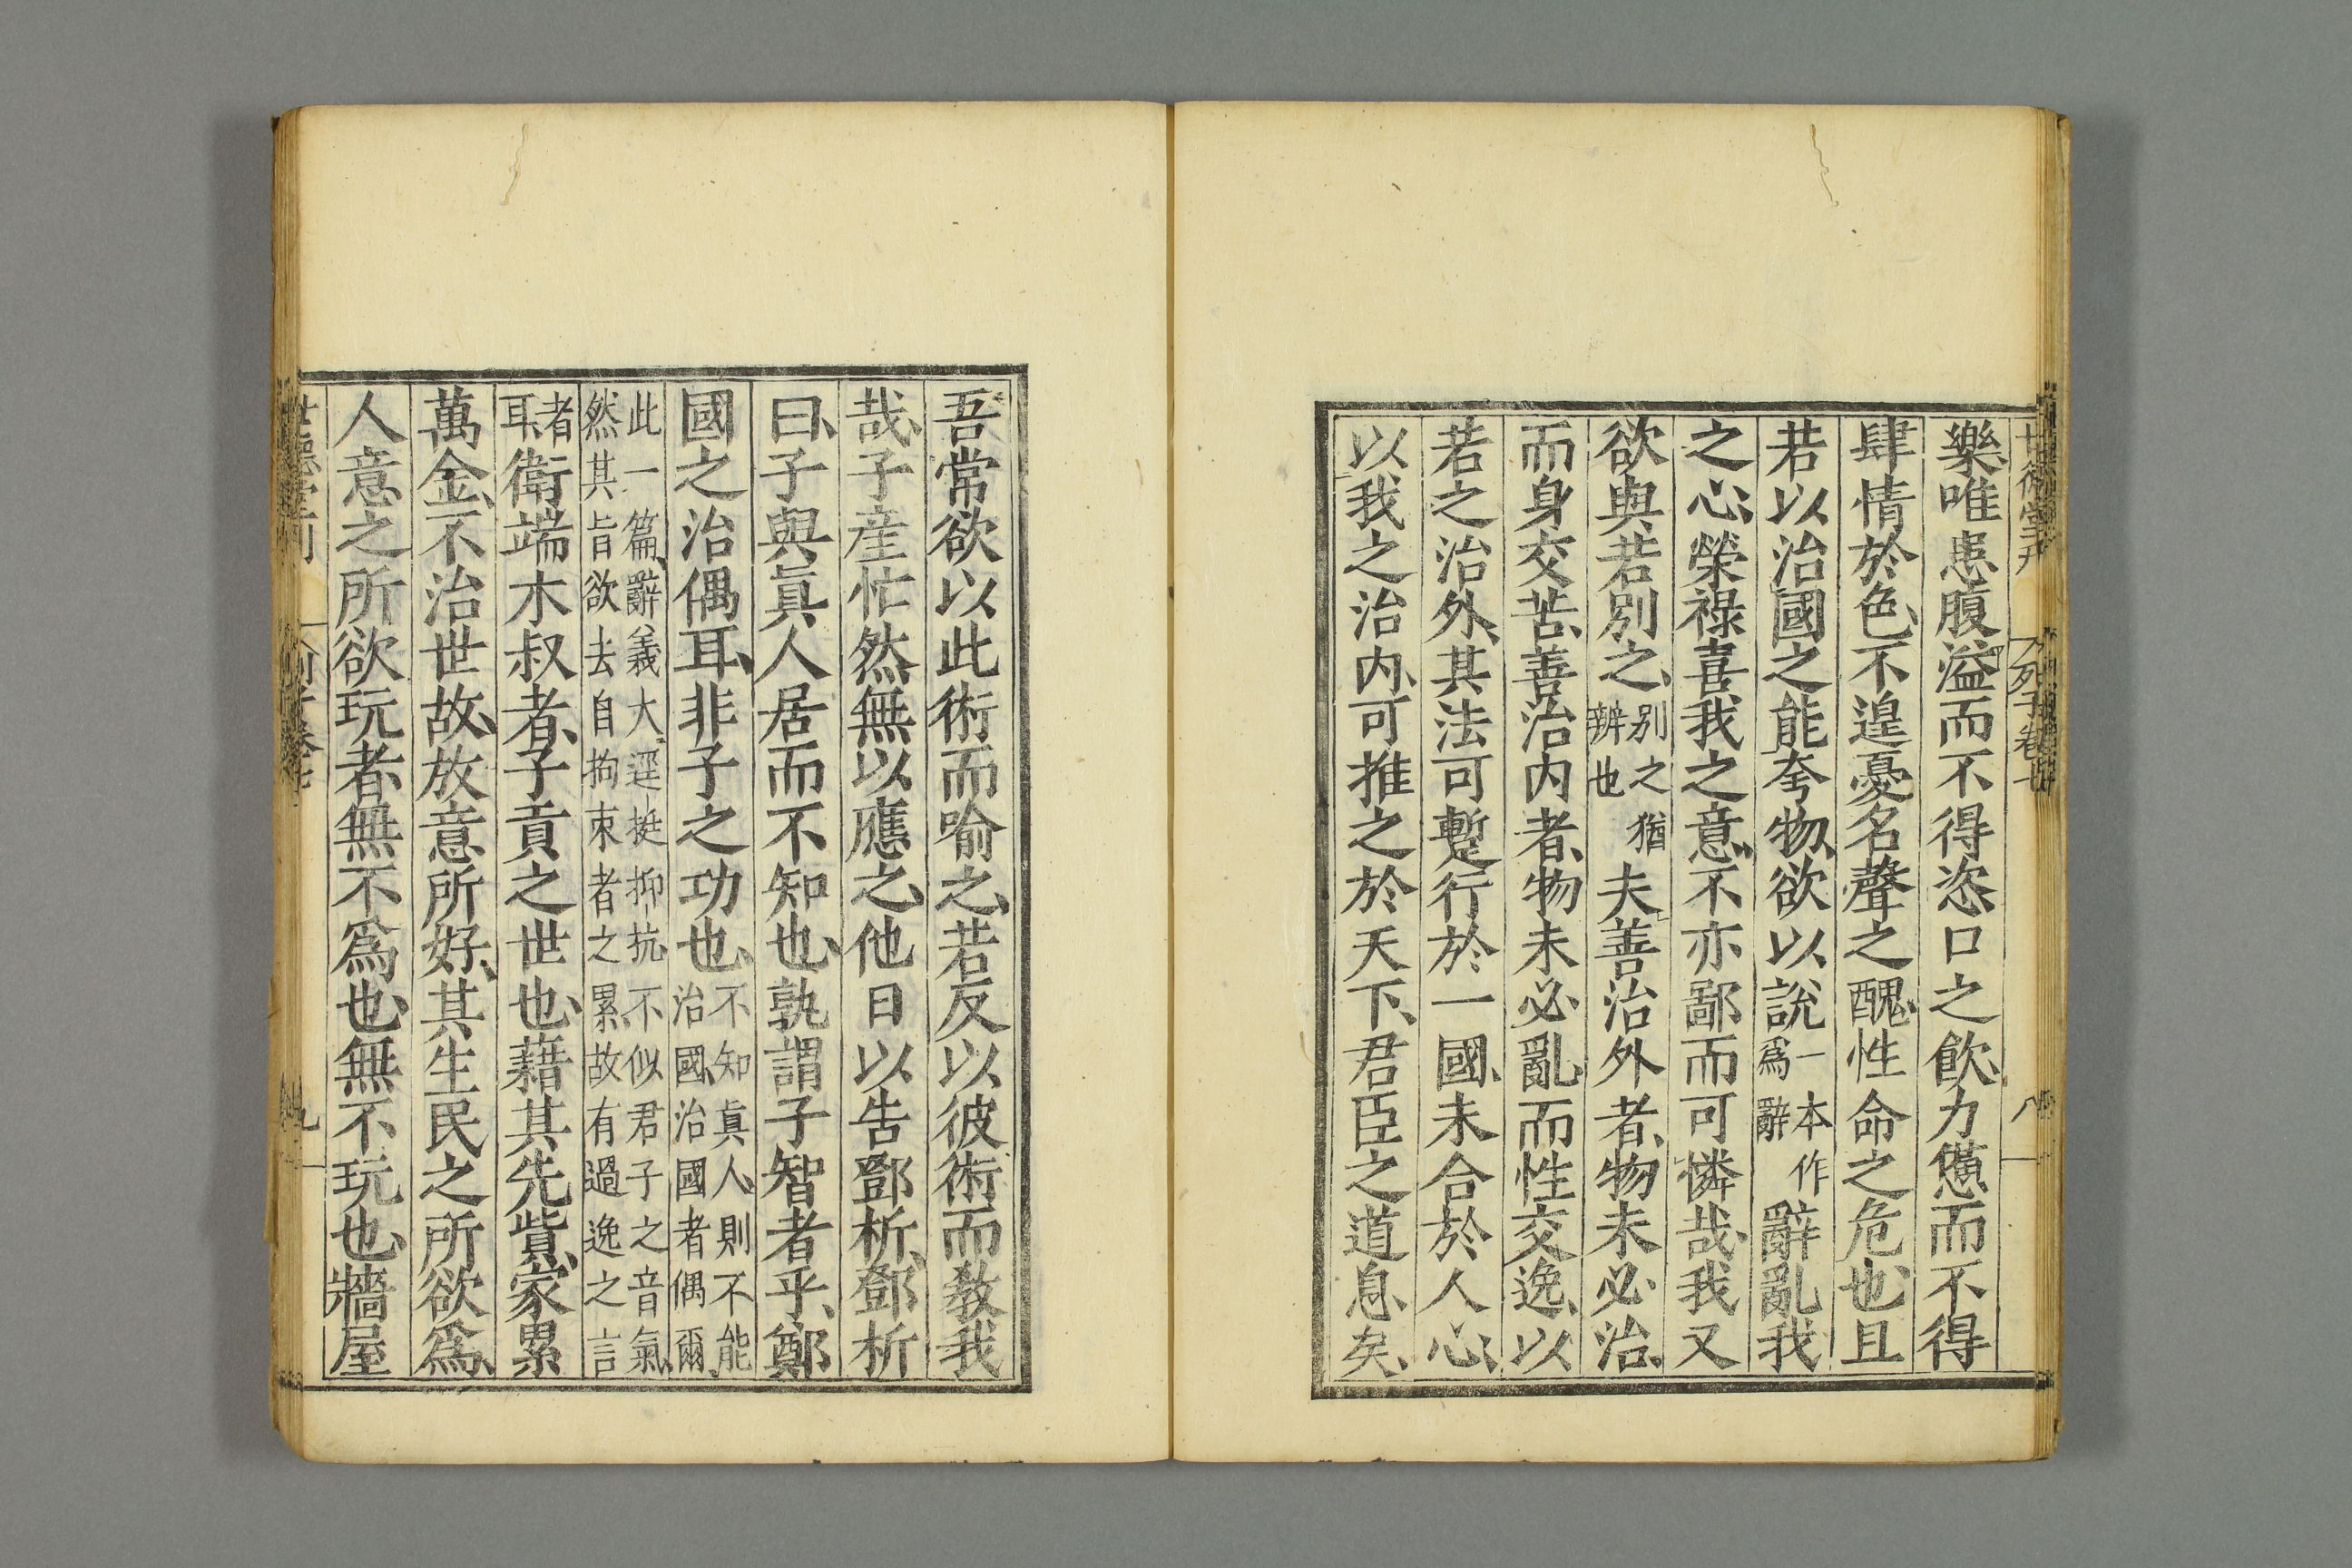 世德堂刊 列子卷七 八
樂唯患腹溢而不得恣口之飲、力憊而不得
肆情於色、不遑憂名聲之醜、性命之危也、且
若以治國之能夸物、欲以說一本作爲辭辭亂我
之心、榮祿喜我之意、不亦鄙而可憐哉、我又
欲與若別之、别之猶辨也夫善治外者、物未必治、
而身交苦、善治内者、物未必亂、而性交逸、以
若之治外、其法可蹔行於一國、未合於人心、
以我之治内、可推之於天下、君臣之道息矣、
吾常欲以此術而喻之、若反以彼術而教我
哉、子產忙然無以應之、他日以告鄧析、鄧析
曰、子與眞人居而不知也、孰謂子智者乎、鄭
國之治偶耳、非子之功也、不知眞人、則不能治國、治國者偶爾、
此一篇、辭義大逕挺抑抗、不似君子之音氣、
然其旨欲去自拘束者之累、故有過逸之言
者耳、衛端木叔者、子貢之世也、藉其先貲、家累
萬金、不治世故、放意所好、其生民之所欲爲、
人意之所欲玩者、無不爲也、無不玩也、牆屋
世德堂刊 列子卷七 九